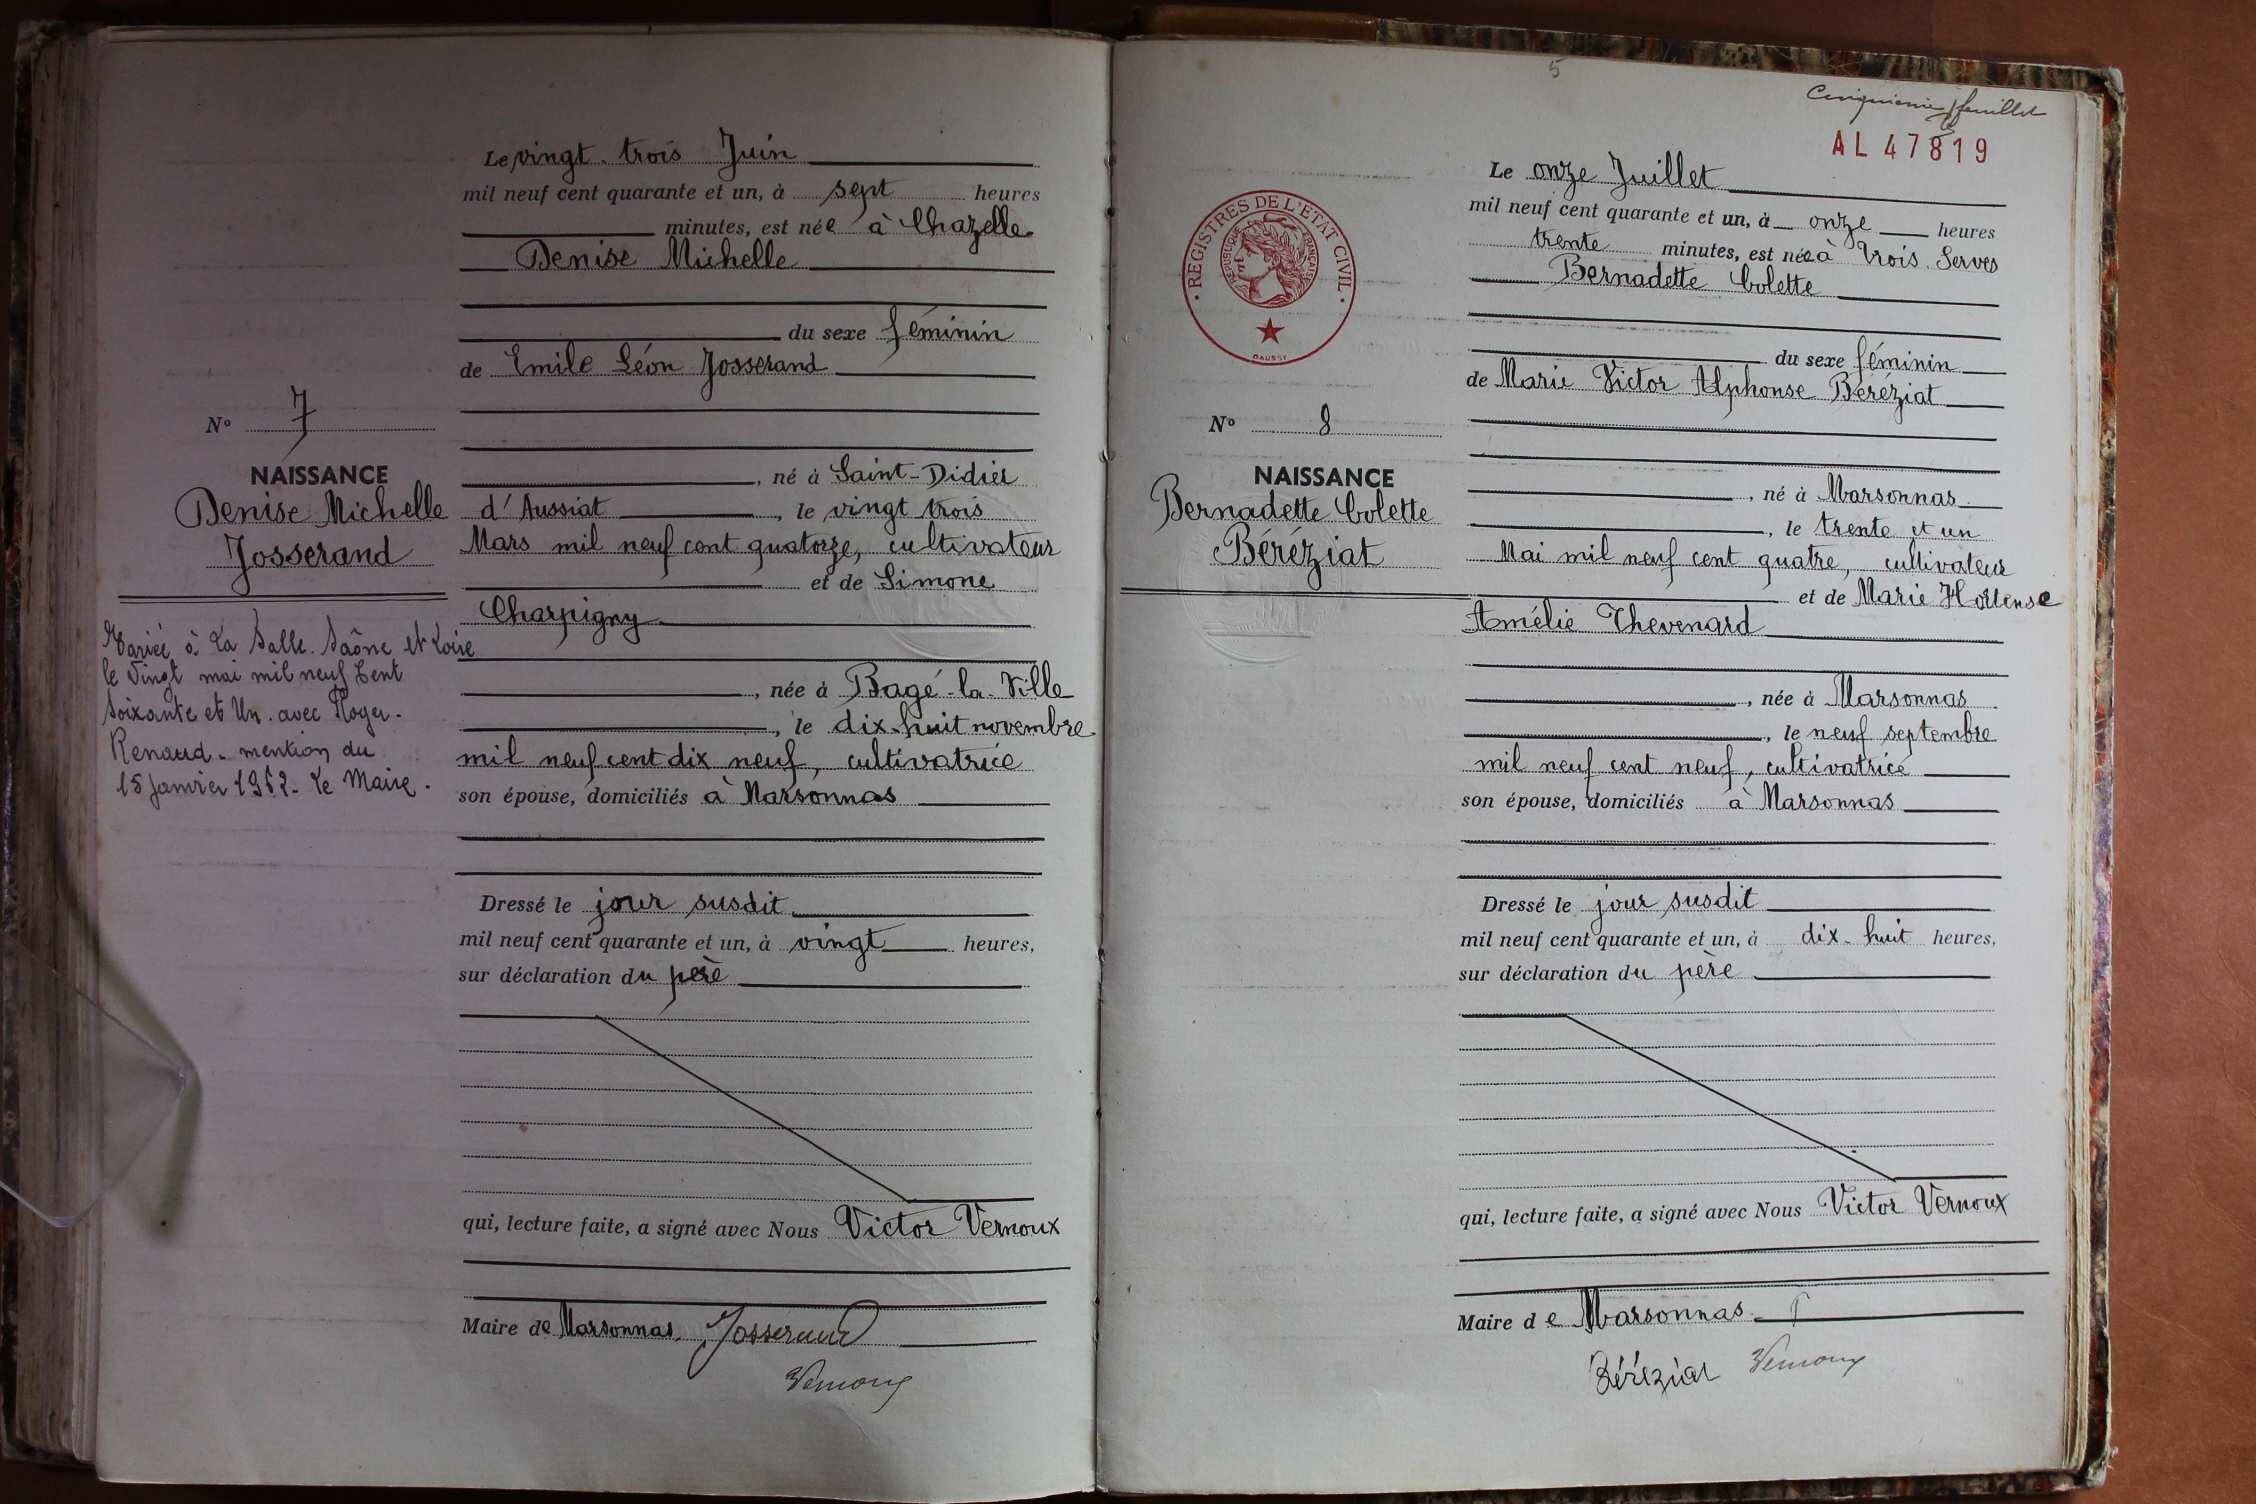 Le vingt-trois Juin
mil neuf cent quarante et un, à sept heures
minutes, est née à Chazelle
Denise Michelle
du sexe féminin
de Emile Léon Josserand
N° 7
NAISSANCE
Denise Michelle
Josserand
, né à Saint-Didier
d'Aussiat , le vingt trois
Mars mil neuf cent quatorze, cultivateur
et de Simone
Charpigny
Mariée à La Salle. Saône et Loire
le Vingt mai mil neuf Cent
Soixante et Un. avec Roger.
Renaud. mention du
15 Janvier 1962. Le Maire.
, née à Bagé-la-Ville
, le dix-huit novembre
mil neuf cent dix neuf, cultivatrice
son épouse, domiciliés à Marsonnas
Dressé le jour susdit
mil neuf cent quarante et un, à vingt heures,
sur déclaration du père
qui, lecture faite, a signé avec Nous Victor Vernoux
Maire de Marsonnas. Josserand
Vernoux
5
Cinquième feuillet
AL 47819
REGISTRES DE L'ETAT CIVIL
REPUBLIQUE FRANÇAISE
DAUSSY
Le onze Juillet
mil neuf cent quarante et un, à onze heures
trente minutes, est née à Trois Serves
Bernadette Colette
du sexe féminin
de Marie Victor Alphonse Béréziat
N° 8
NAISSANCE
Bernadette Colette
Béréziat
, né à Marsonnas
, le trente et un
Mai mil neuf cent quatre, cultivateur
et de Marie Hortense
Amélie Thevenard
, née à Marsonnas
, le neuf septembre
mil neuf cent neuf, cultivatrice
son épouse, domiciliés à Marsonnas
Dressé le jour susdit
mil neuf cent quarante et un, à dix-huit heures,
sur déclaration du père
qui, lecture faite, a signé avec Nous Victor Vernoux
Maire de Marsonnas
Béréziat Vernoux